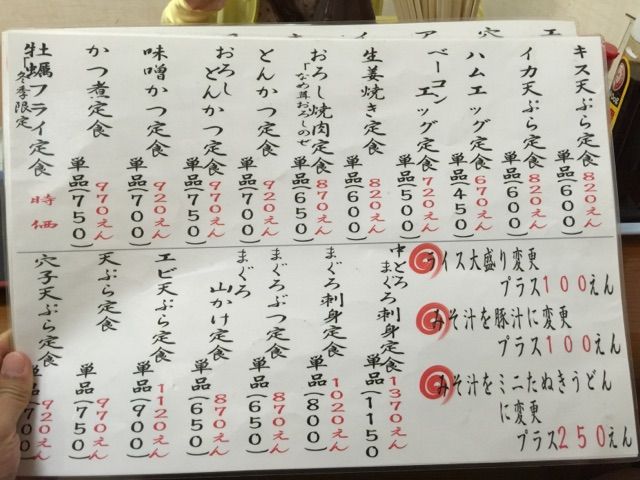 キス天ぷら定食 820えん
単品(600)
イカ天ぷら定食 820えん
単品(600)
ハムエッグ定食 670えん
単品(450)
ベーコンエッグ定食 720えん
単品(500)
生姜焼き定食 820えん
単品(600)
おろし焼肉定食 870えん
「なめ茸おろしのせ
単品(650)
とんかつ定食 920えん
単品(700)
おろしとんかつ定食 970えん
単品(750)
味噌かつ定食 920えん
単品(700)
かつ煮定食 970えん
単品(750)
牡蠣フライ定食 時価
「冬季限定
ライス大盛り変更
プラス100えん
みそ汁を豚汁に変更
プラス100えん
みそ汁をミニたぬきうどん
に変更
プラス250えん
中とろまぐろ刺身定食 1370えん
単品(1150
まぐろ刺身定食 1020えん
単品(800)
まぐろぶつ定食 870えん
単品(650)
まぐろ山かけ定食 870えん
単品(650)
エビ天ぷら定食 1120えん
単品(900)
天ぷら定食 970えん
単品(750)
穴子天ぷら定食 920えん
単品(700)